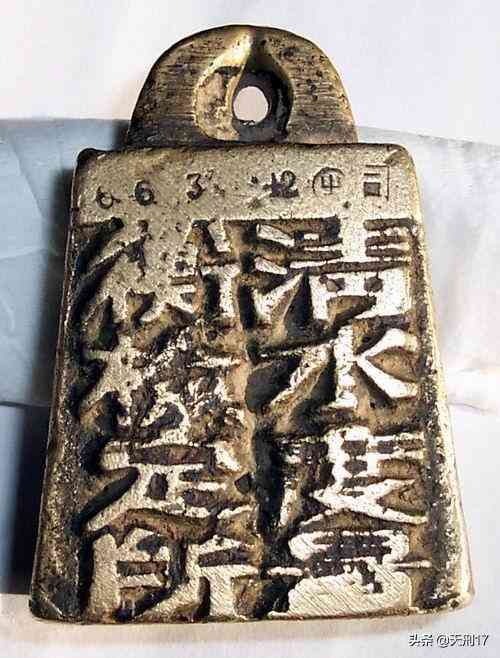 6 6 3 12 司
清水度量
衡檢定所
头条 @天刑17